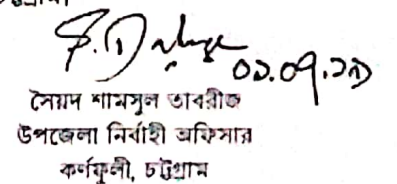 ০১.০৭.২১
সৈয়দ শামসুল তাবরীজ
উপজেলা নির্বাহী অফিসার
কর্ণফুলী, চট্টগ্রাম